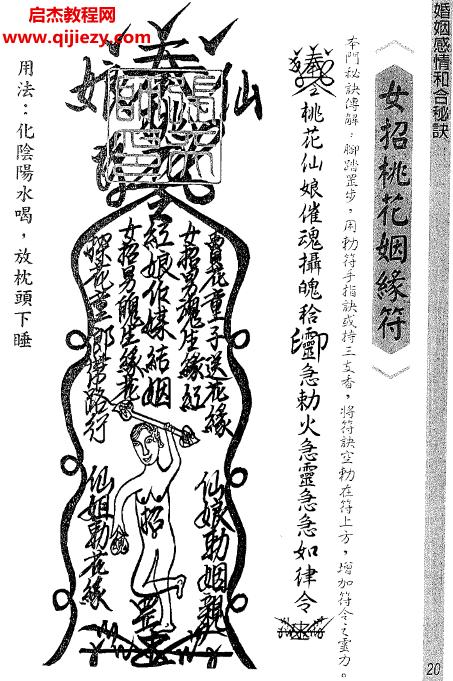 启杰教程网
www.qijiezy.com
婚姻感情和合秘訣
女招桃花姻緣符
本門秘訣傳解：腳踏罡步，用勅符手指訣或持三支香，將符訣空勅在符上方，增加符令之靈力。
桃花仙娘催魂攝魄
急勅火急靈急急如律令
仙
娘
曹花童子送花緣
女招男魂生緣紅
紅娘作媒結姻
女招男魄生緣花
探花童郎帶路行
仙娘勅姻親
招
罡
仙姐勅花緣
用法：化陰陽水喝，放枕頭下睡
20